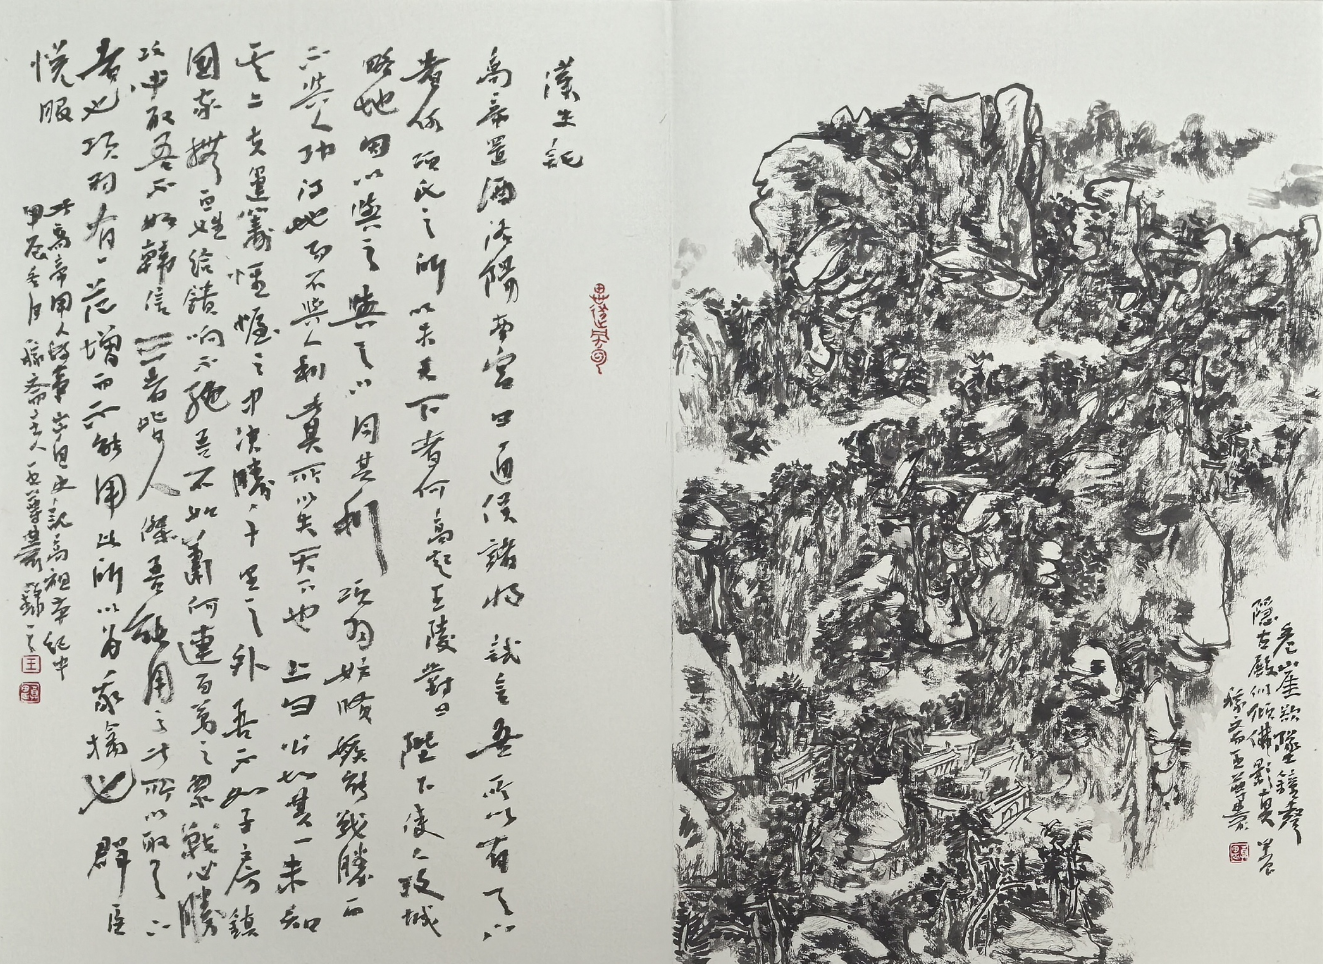 山崖欲墜鐘聲
隱古殿似傾佛影真
漢史記
高帝置酒洛陽南宮曰通侯諸將試言吾所以有天下
者何項氏之所以失天下者何高起王陵對曰陛下使人攻城
略地因以與之與天下同其利項羽妒賢嫉能戰勝而
不與人功得地而不與人利其所以失天下也上曰公知其一未知
其二夫運籌帷幄之中決勝千里之外吾不如子房鎮
國家撫百姓給饋餉不絕吾不如蕭何連百萬之眾戰必勝
攻必取吾不如韓信三者皆人傑吾能用之此所以取天下
者也項羽有一范增而不能用此所以為我擒也群臣
悅服
此高帝用人故事出自史記高祖本紀中
甲辰冬月齋主人王錄之